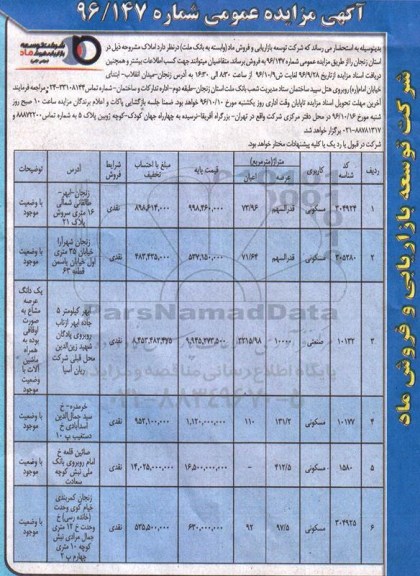 آگهی مزایده عمومی شماره ۹۶/۱۴۷
شرکت توسعه
بازاریابی و فروش ماد
بدینوسیله به استحضار می رساند که شرکت توسعه بازاریابی و فروش ماد (وابسته به بانک ملت) در نظر دارد املاک مشروحه ذیل در
استان زنجان را از طریق مزایده عمومی شماره ۹۶/۱۴۷ به فروش رساند. متقاضیان میتوانند جهت کسب اطلاعات بیشتر و همچنین
دریافت اسناد مزایده از تاریخ ۹۶/۹/۲۸ لغایت ۹۶/۱۰/۹ از ساعت ۸:۳۰ الی ۱۶:۳۰ به آدرس زنجان-میدان انقلاب- ابتدای
خیابان امام(ره) روبروی هتل سپید ساختمان ستاد مدیریت شعب بانک ملت استان زنجان-طبقه دوم-اداره تدارکات و ساختمان-شماره تماس ۳۳۱۰۸۱۴۴-۰۲۴ مراجعه فرمایند
آخرین مهلت تحویل اسناد مزایده تا پایان وقت اداری روز یکشنبه مورخ ۹۶/۱۰/۱۰ خواهد بود. ضمنا جلسه بازگشایی پاکات و اعلام برندگان مزایده ساعت ۱۰ صبح روز
شنبه مورخ ۹۶/۱۰/۱۶ در محل دفتر مرکزی شرکت واقع در تهران- بزرگراه آفریقا-نرسیده به چهارراه جهان کودک-کوچه ژوبین پلاک ۵ به شماره تماس ۸۸۸۷۲۲۰۰ و
۸۸۷۸۱۳۱۷-۰۲۱ برگزار خواهد شد.
شرکت در قبول یا رد یک یا کلیه پیشنهادات مختار خواهد بود.
ردیف کد شناسه کاربری متراژ(مترمربع) عرصه اعیان قیمت پایه مبلغ با احتساب تخفیف شرایط فروش آدرس توضیحات
۱ ۳۰۴۹۲۴ مسکونی قدرالسهم ۷۲/۹۶ ۹۹۸,۴۶۰,۰۰۰ ۸۹۸,۶۱۴,۰۰۰ نقدی زنجان-ابهر-طالقانی شمالی ۱۶ متری سروش پلاک ۲۱ با وضعیت موجود
۲ ۲۰۵۲۸۰ مسکونی قدرالسهم ۷۱/۶۴ ۵۳۷,۱۵۰,۰۰۰ ۴۸۳,۴۳۵,۰۰۰ نقدی زنجان شهرآرا خیابان ۳۵ متری اول خیابان یاسمن قطعه ۶۳ با وضعیت موجود
۳ ۱۰۱۳۲ صنعتی ۱۰۰۰۰ ۳۲۱۵/۹۸ ۹,۹۴۵,۲۷۳,۵۰۰ ۸,۴۵۳,۴۸۲,۴۷۵ نقدی ابهر کیلومتر ۵ جاده ابهر ارتاب روبروی پادگان شهید زین‌الدین محل قبلی شرکت ریان آسیا یک دانگ عرصه مشاع به صورت اوقافی بوده به همراه ماشین آلات با وضعیت موجود
۴ ۱۰۱۷۷ مسکونی ۱۳۱/۲ ۱۱۰ ۱,۱۲۰,۰۰۰,۰۰۰ ۹۵۲,۱۰۰,۰۰۰ نقدی خرمدره- خ سید جمال‌الدین اسدآبادی خ دستغیب پ ۱۰ با وضعیت موجود
۵ ۱۵۸۰ مسکونی ۴۱۲/۵ - ۱۶,۵۰۰,۰۰۰,۰۰۰ ۱۴,۰۲۵,۰۰۰,۰۰۰ نقدی صائین قلعه خ امام روبروی بانک ملی نبش کوچه سعادت با وضعیت موجود
۶ ۳۰۴۹۲۵ مسکونی ۹۷/۵ ۹۲ ۶۳۰,۰۰۰,۰۰۰ ۵۳۵,۵۰۰,۰۰۰ نقدی زنجان کمربندی خیام کوی وحدت (خانده رسی) خ وحدت خ ۱۲ متری جمال مرادی نبش کوچه ۱۰ متری چهارم پ ۲ با وضعیت موجود
شرکت توسعه بازاریابی و فروش ماد
ParsNamadData
پایگاه اطلاع رسانی مناقصه و مزایده
۰۲۱-۸۸۳۴۹۶۷۰-۵